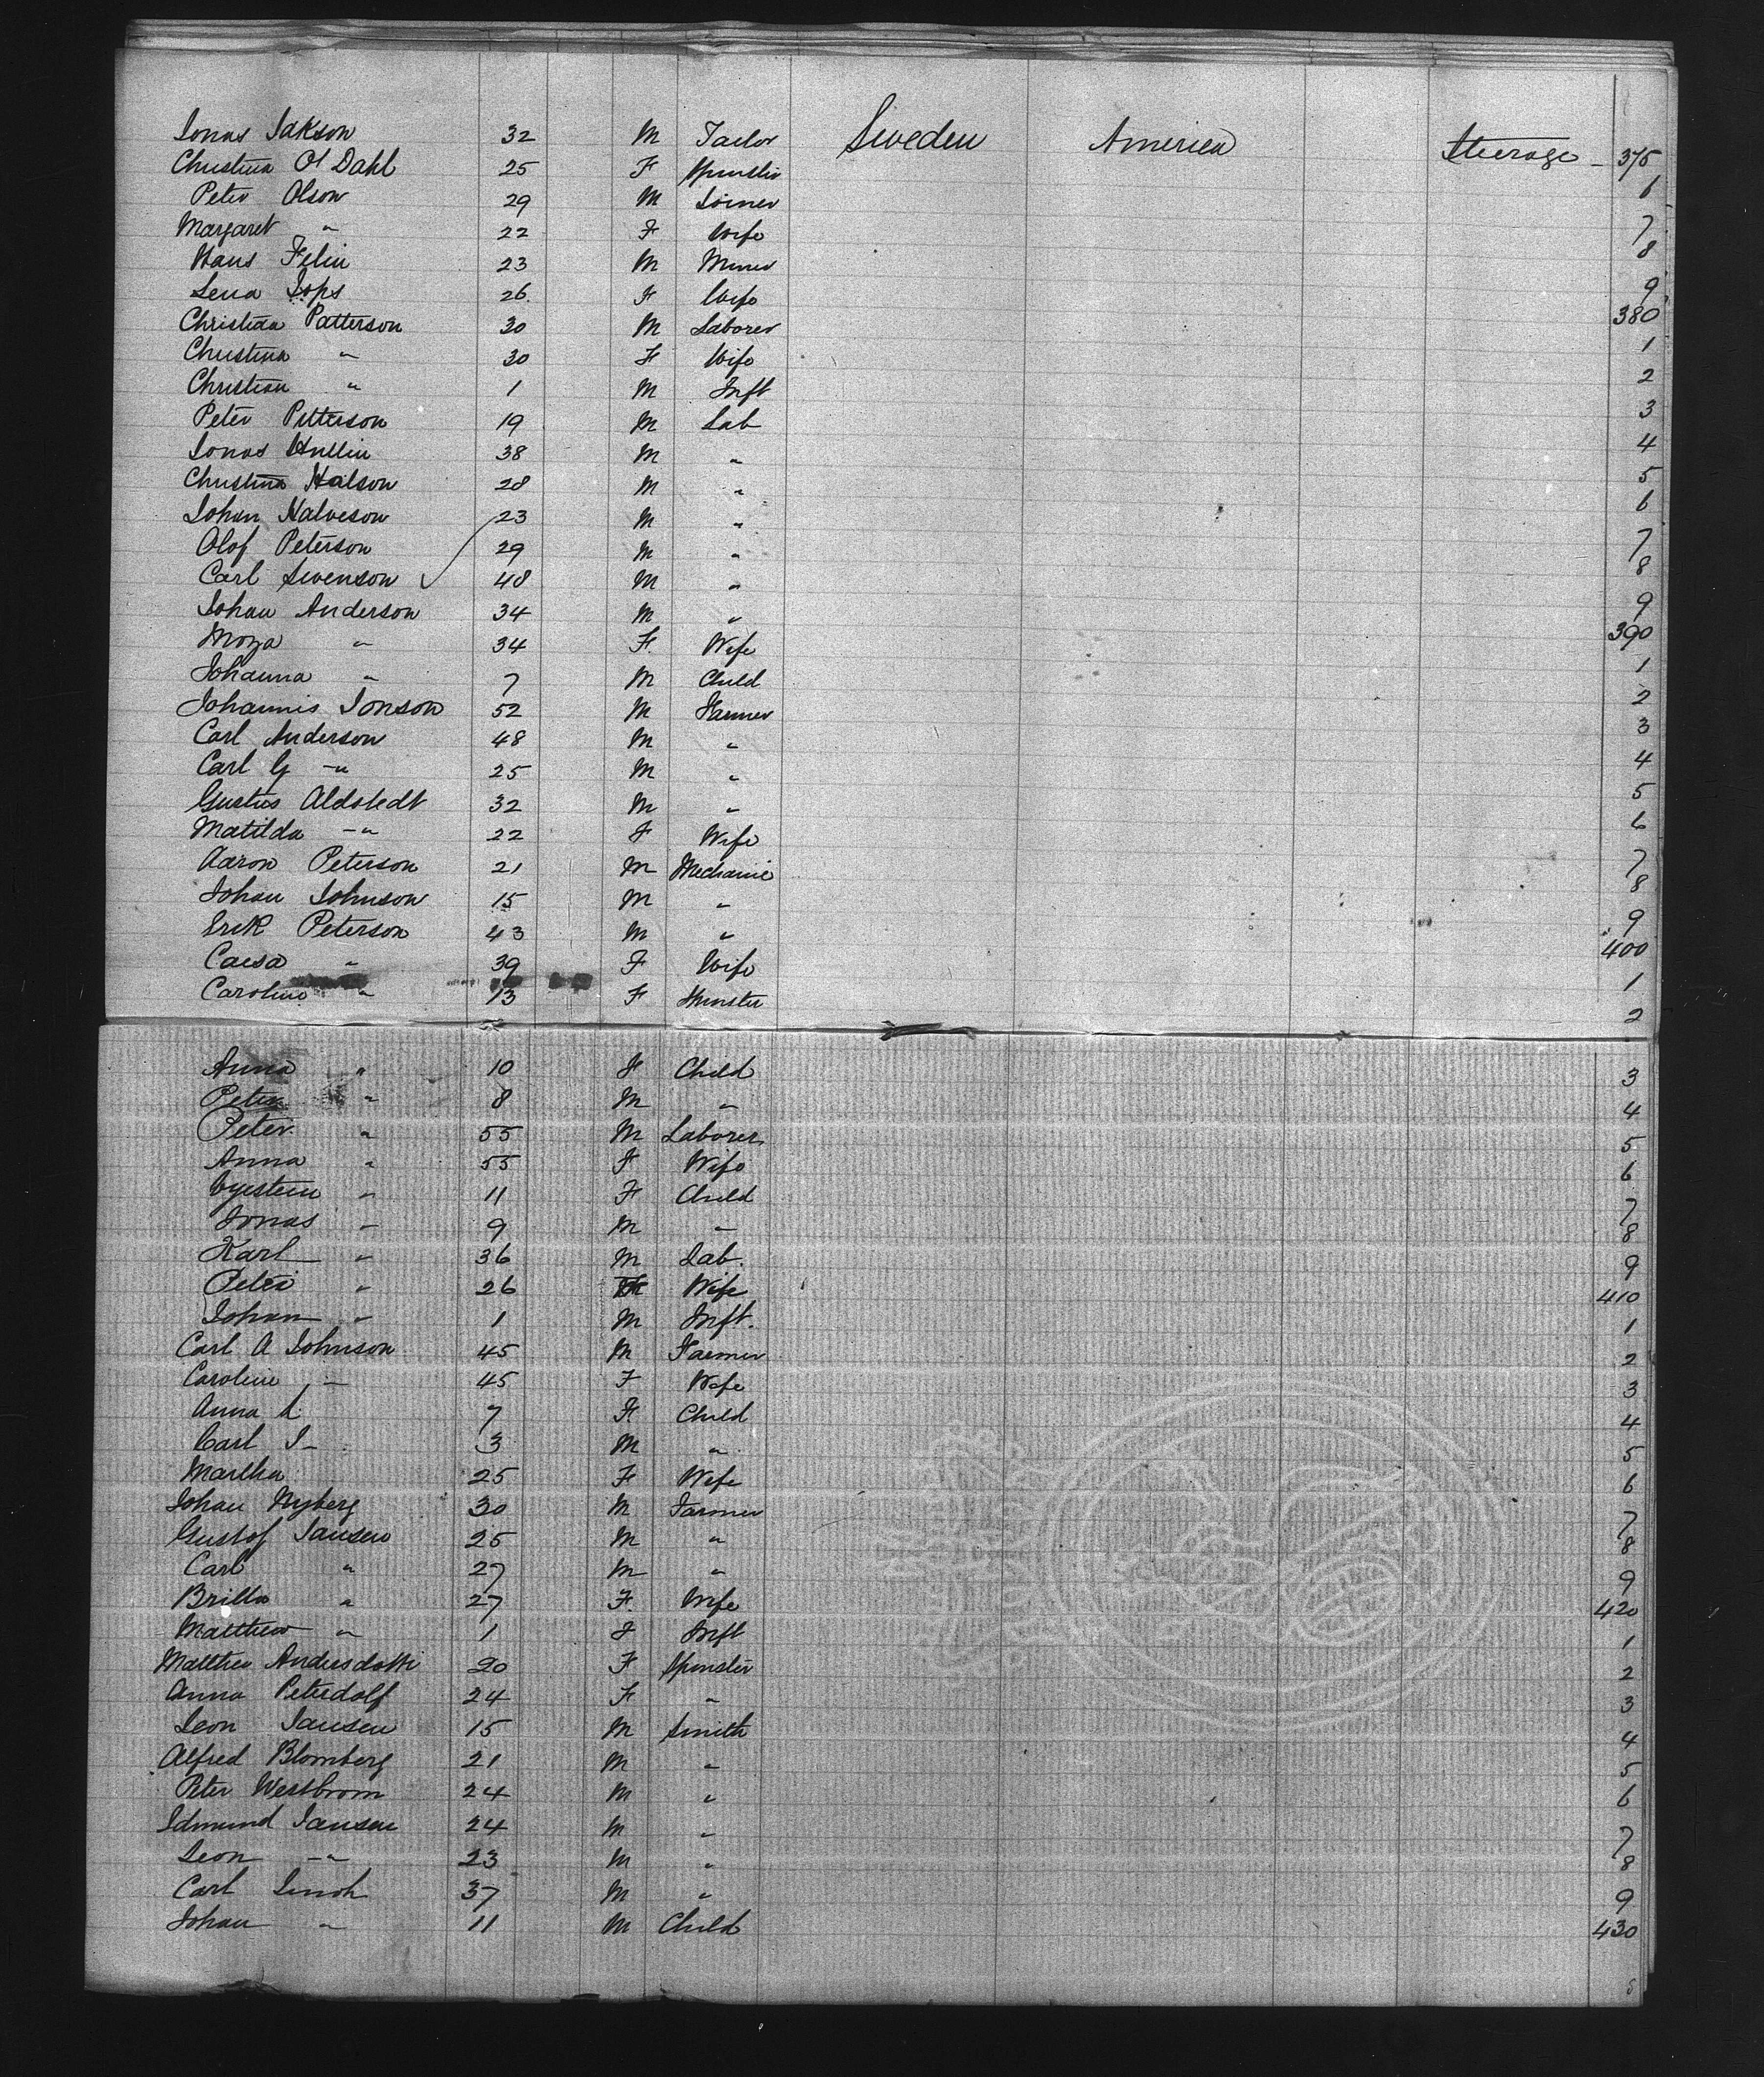 Jonas Isakson 32 M Tailor Sweden America Steerage - 375
Christina Ol Dahl 25 F Spinster 6
Peter Olson 29 M Joiner 7
Margaret " 22 F Wife 8
Hans Felin 23 M Miner 9
Lena Jops 26 F Wife 380
Christian Patterson 30 M Laborer 1
Christina " 30 F Wife 2
Christian " 1 M Inft 3
Peter Pitterson 19 M Lab 4
Jonas Hullin 38 M " 5
Christina Halson 28 M " 6
Johan Halveson 23 M " 7
Olof Peterson 29 M " 8
Carl Swenson 48 M " 9
Johan Anderson 34 M " 390
Moza " 34 F. Wife 1
Johanna " 7 M Child 2
Johannis Jonson 52 M Farmer 3
Carl Anderson 48 M " 4
Carl G -" 25 M " 5
Gustus Aldstedt 32 M " 6
Matilda -" 22 F Wife 7
Aaron Peterson 21 M Mechanic 8
Johan Johnson 15 M " 9
Erik Peterson 43 M " 400
Caesa " 39 F Wife 1
Caroline " 13 F Spinster 2
Anna " 10 F Child 3
Peter " 8 M " 4
Peter " 55 M Laborer 5
Anna " 55 F Wife 6
" 11 F Child 7
Jonas " 9 M " 8
Karl " 36 M Lab. 9
Peter " 26 F Wife 410
Johan " 1 M Inft. 1
Carl A Johnson 45 M Farmer 2
Caroline " 45 F Wife 3
Anna L 7 F Child 4
Carl J - 3 M " 5
Martha 25 F Wife 6
Johan Nyberg 30 M Farmer 7
Gustof Jansen 25 M " 8
Carl " 27 M " 9
Britta " 27 F. Wife 420
Matthew " 1 F Inft 1
Matthew Andersdotti 20 F Spinster 2
Anna Peterdolf 24 F " 3
Leon Jansen 15 M Smith 4
Alfred Blomberg 21 M " 5
Peter Westbrom 24 M " 6
Edmund Jansen 24 M " 7
Leon -" 23 M " 8
Carl 37 M " 9
Johan " 11 M Child 430